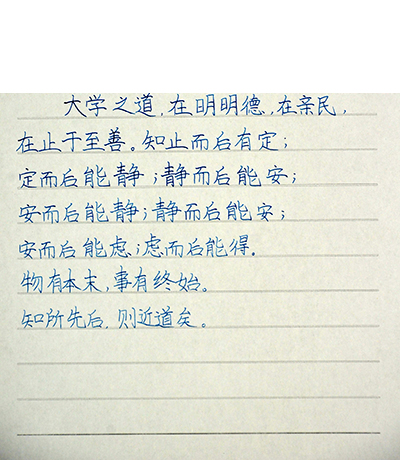 大学之道,在明明德,在亲民,
在止于至善。知止而后有定;
定而后能静;静而后能安;
安而后能静;静而后能安;
安而后能虑;虑而后能得.
物有本末,事有终始。
知所先后,则近道矣。